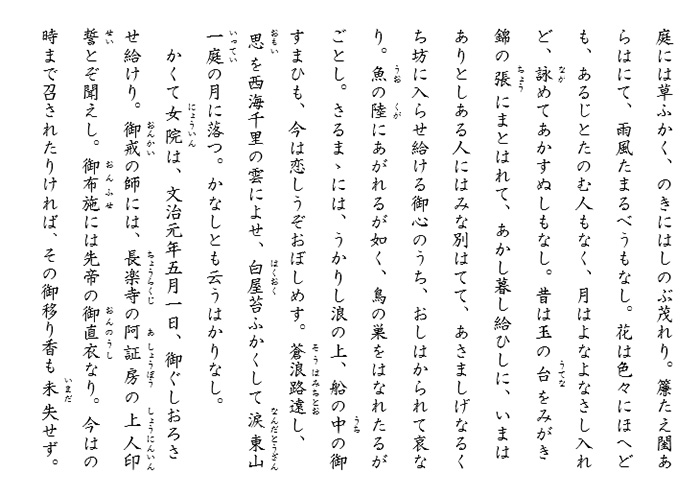 庭には草ふかく、のきにはしのぶ茂れり。簾たえ閨あ
らはにて、雨風たまるべうもなし。花は色々にほへど
も、あるじとたのむ人もなく、月はよなよなさし入れ
ど、詠めてあかすぬしもなし。昔は玉の台をみがき
錦の張にまとはれて、あかし暮し給ひしに、いまは
ありとしある人にはみな別はてて、あさましげなるく
ち坊に入らせ給ける御心のうち、おしはかられて哀な
り。魚の陸にあがれるが如く、鳥の巣をはなれたるが
ごとし。さるまゝには、うかりし浪の上、船の中の御
すまひも、今は恋しうぞおぼしめす。蒼浪路遠し、
思を西海千里の雲によせ、白屋苔ふかくして涙東山
一庭の月に落つ。かなしとも云うはかりなし。
かくて女院は、文治元年五月一日、御ぐしおろさ
せ給けり。御戒の師には、長楽寺の阿証房の上人印
誓とぞ聞えし。御布施には先帝の御直衣なり。今はの
時まで召されたりければ、その御移り香も未失せず。